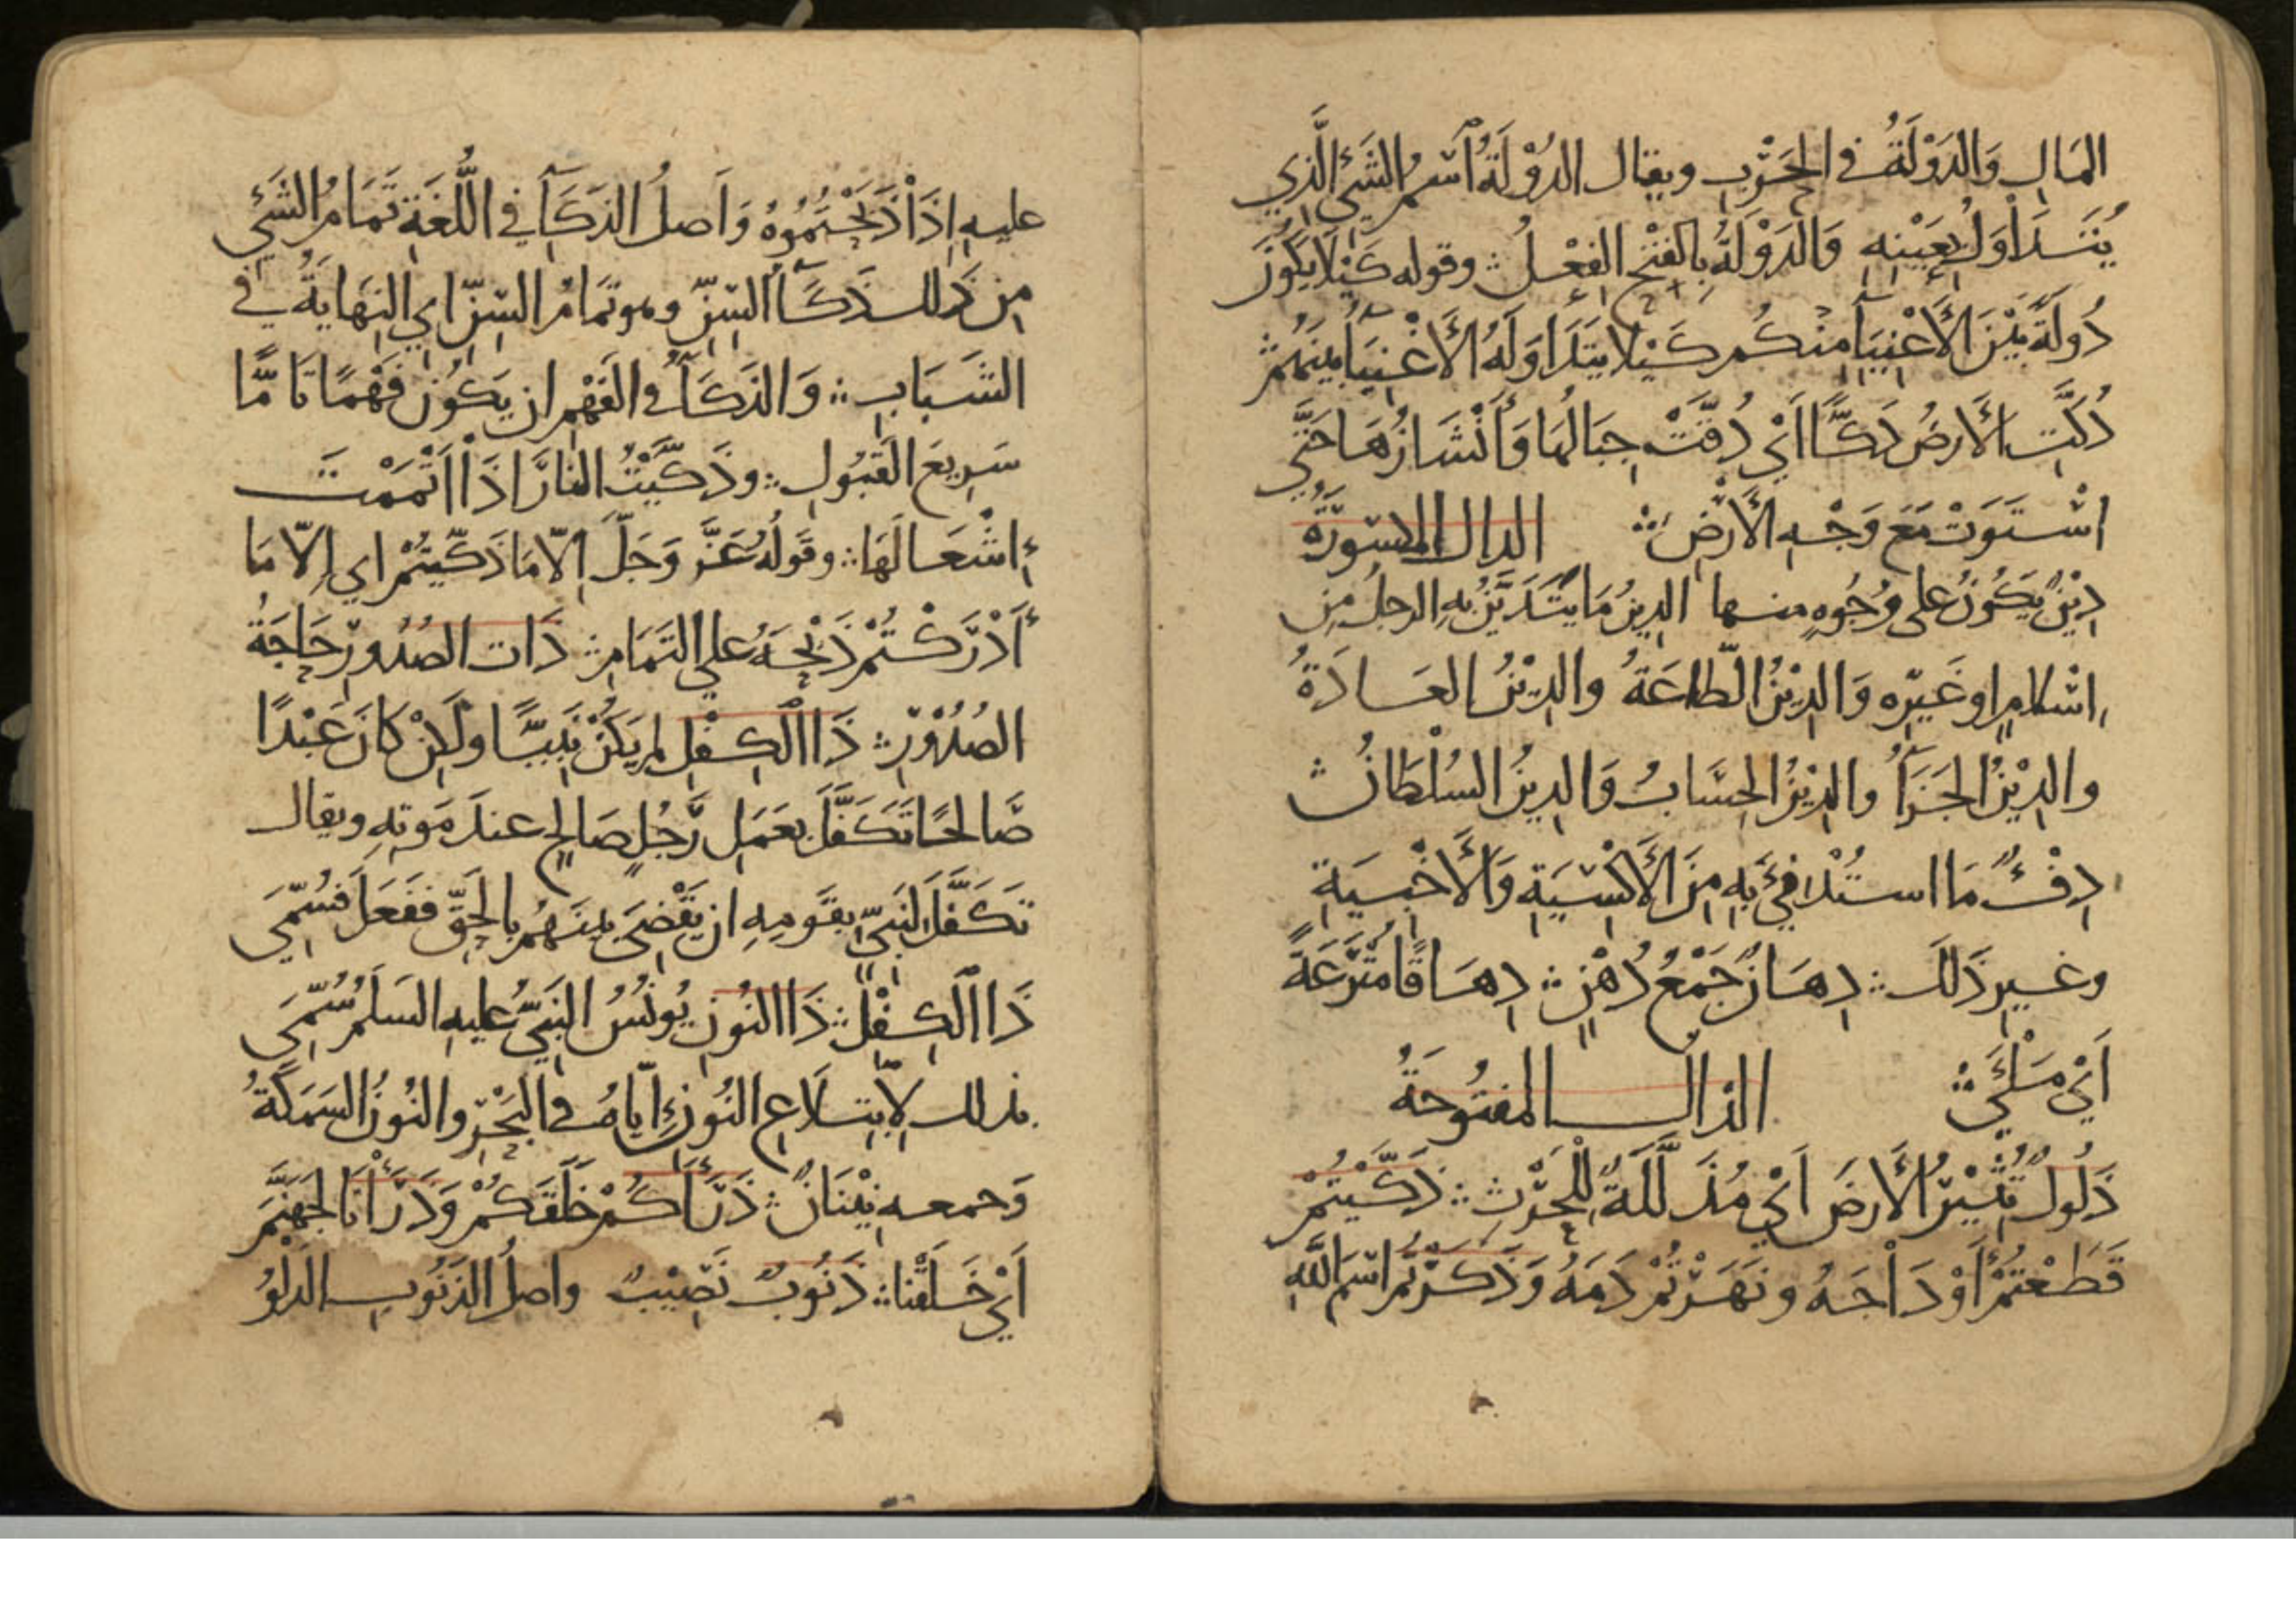 المَالِ وَالدَوْلَةُ في الحَرْبِ ويقال الدُوْلَةُ ٱسْمُ الشَيْءِ الَّذِي
يُتَدَاوَلُ بِعَيْنِهِ وَالدَوْلَةُ بِالفَتْحِ الفِعْلُ ؞ وقوله كَيْلَا يَكُوْنَ
دُولَةً بَيْنَ الأَغْنِيَآءِ مِنْكُم كَيْلا يَتَدَاوَلَهُ الأَغْنِيَآءُ بَيْنَهُمْ ؞
دُكَّتِ الأَرضُ دَكًّا اَيْ دُقَّتْ جِبَالُهَا وَأَنْشَازُهَا حَتَّى
اسْتَوَتْ مَعَ وَجْهِ الأَرْضِ ؞ الدال المكسورَةُ
دِيْنٌ يَكُوْنُ على وُجُوهٍ منها الدِينُ مَا يَتَدَيَّنُ بِهِ الرجلُ مِن
اِسْلَامٍ او غَيْرِه وَالدِيْنُ الطَّاعَةُ والدِيْنُ العَادَةُ
والدِيْنُ الجَزَآءُ والدِيْنُ الحِسَابُ وَالدِينُ السُلْطَانُ ؞
دِفْءٌ مَا استُدْفِئَ بِهِ مِنَ الأَكْسِيَةِ وَالأَخْبِيَةِ
وغيرِ ذَلكَ ؞ دِهَانٌ جَمْعُ دُهْنٍ ؞ دِهَاقًا مُتْرَعَةً
اَيْ مَلْأَى ؞ الذال المفتُوحَةُ
ذَلُولٌ تُثِيْرُ الأَرضَ اَيْ مُذَلَّلَةٌ لِلْحَرْثِ ؞ ذَكَّيْتُمْ
قَطَعْتُمْ أَوْدَاجَهُ ونَهَرْتُمْ دَمَهُ وَذَكَرْتُمُ اسْمَ اللَّهِ
عليهِ اِذَا ذَبَحْتُمُوهُ وَاَصلُ الذَكَآءِ في اللُّغَةِ تَمَامُ الشَيْءِ
مِن ذَلك ذَكَآءُ السِنِّ وهو تَمَامُ السِنِّ اي النِهَايَةُ في
الشَبَابِ ؞ وَالذَكَآءُ في الفَهْمِ ان يَكُوْنَ فَهْمًا تَامًّا
سَرِيعَ القَبُولِ ؞ وذَكَّيْتُ النارَ اذَا اَتْمَمْتَ
اِشْعَالَهَا ؞ وقَولُهُ عَزَّ وَجَلَّ اِلّا مَا ذَكَّيتُمْ اي اِلّا مَا
أَدْرَكْتُمْ ذَبْحَهُ على التَمَامِ ؞ ذَات الصُدُورِ حَاجَةُ
الصُدُوْرِ ؞ ذَا الكِفْلِ لم يَكُنْ نَبِيًّا ولَكِنْ كَانَ عَبْدًا
صَالحًا تَكَفَّلَ بعَمَلِ رَجُلٍ صَالحٍ عندَ مَوتِهِ ويقال
تَكَفَّلَ لنَبِيٍّ بقَومِهِ ان يَقْضِيَ بينَهُم بالحَقِّ ففَعَلَ فسُمِّيَ
ذَا الكِفْلِ ؞ ذَا النُونِ يُونُسُ النَبِيُّ عليهِ السَلَمُ سُمِّيَ
بذلك لِابْتِلَاعِ النُونِ إِيّاهُ في البَحْرِ والنُونُ السَمَكَةُ
وَجمعه نِيْنَانٌ ؞ ذَرَأَكُمْ خَلَقَكُمْ وَذَرَأْنَا لجَهَنَّمَ
اَيْ خَلَقْنا ؞ ذَنُوبٌ نَصِيْبٌ واصلُ الذَنُوبِ الدَلْوُ